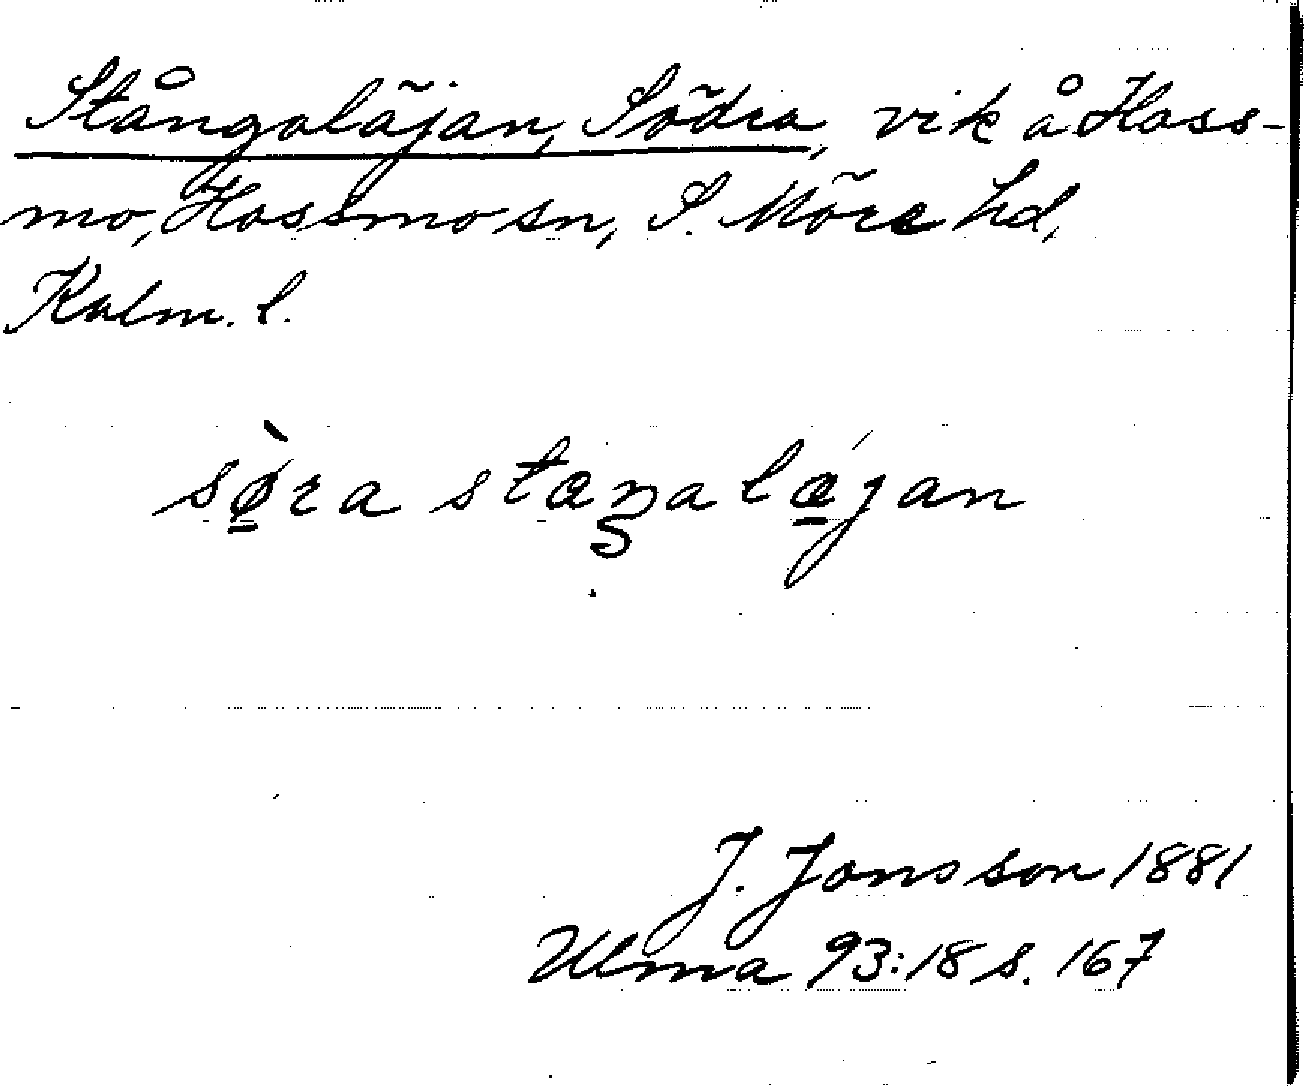 Stångaläjan, Södra, vik å Hoss-
mo, Hossmo sn, S. Möre hd,
Kalm. l.
sø̠̀ra staŋalá̠jan
J. Jonsson 1881
Ulma 93:18 s. 167